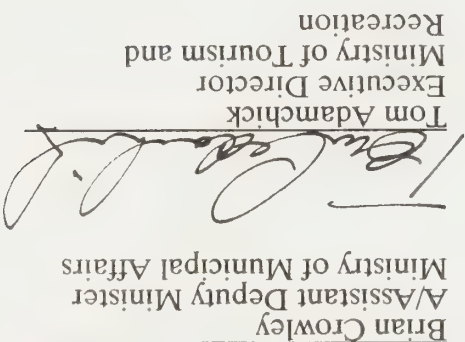 Brian Crowley
A/Assistant Deputy Minister
Ministry of Municipal Affairs
Tom Adamchick
Executive Director
Ministry of Tourism and
Recreation